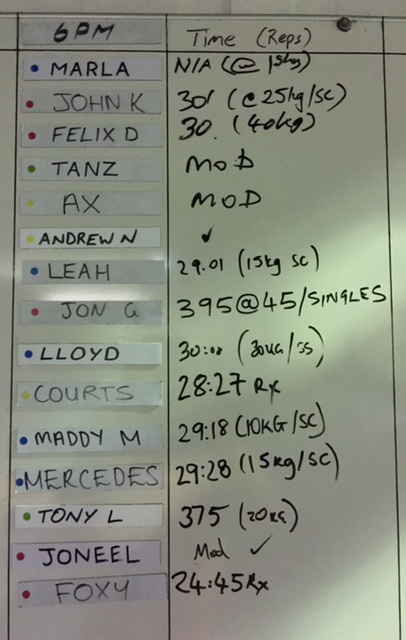 6PM Time (Reps)
MARLA N/A (@ 15kg)
JOHN K 30' (@25kg/SC)
FELIX D 30. (40kg)
TANZ MOD
AX MOD
ANDREW N ✓
LEAH 29.01 (15kg SC)
JON G 395@45/SINGLES
LLOYD 30:00 (30KG/SS)
COURTS 28:27 Rx
MADDY M 29:18 (10KG/SC)
MERCEDES 29:28 (15kg/SC)
TONY L 375 (20KG)
JONEEL Mod ✓
FOXY 24:45 Rx